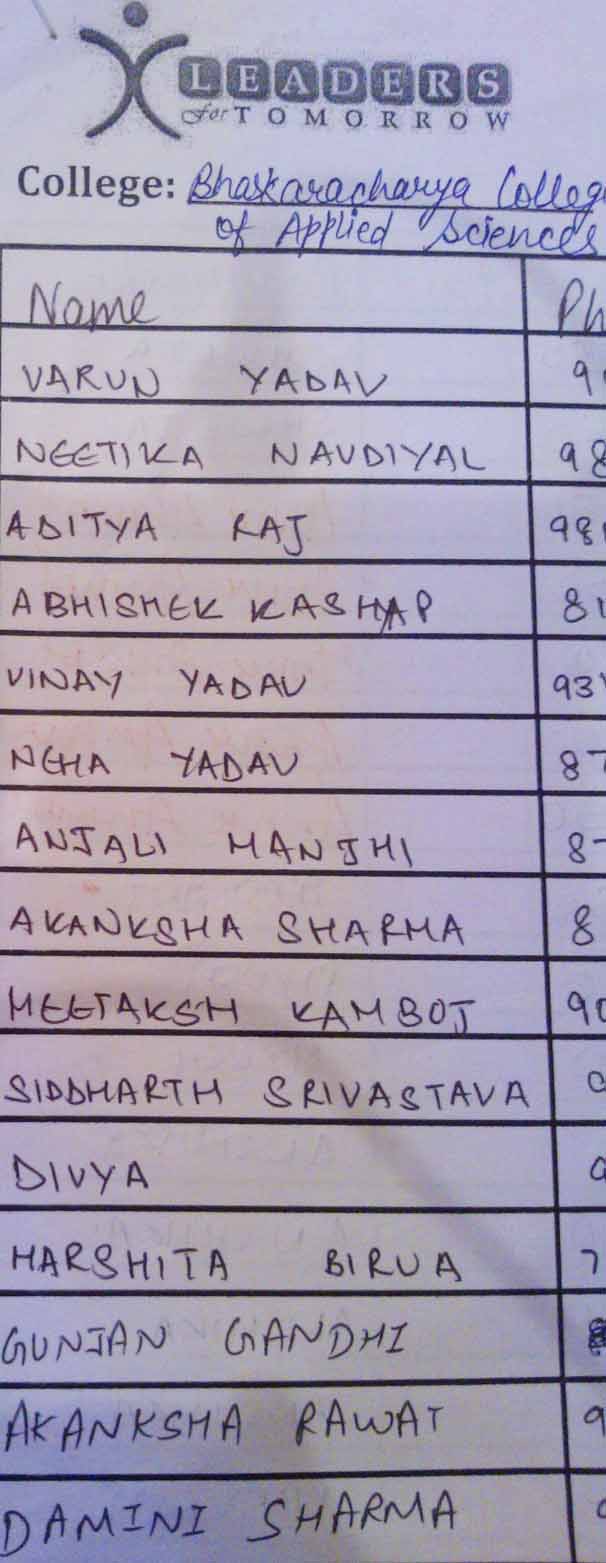 LEADERS
for TOMORROW
College: Bhaskaracharya College
of Applied Sciences
Name Ph
VARUN YADAV 9
NEETIKA NAUDIYAL 98
ADITYA RAJ 981
ABHISHEK KASHYAP 81
VINAY YADAV 93
NEHA YADAV 87
ANJALI MANJHI 8
AKANKSHA SHARMA 8
MEETAKSH KAMBOJ 90
SIDDHARTH SRIVASTAVA
DIVYA 9
HARSHITA BIRUA 7
GUNJAN GANDHI
AKANKSHA RAWAT 9
DAMINI SHARMA